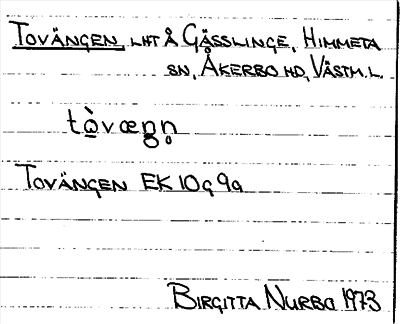 TOVÄNGEN, LHT Å GÄSSLINGE, HIMMETA
SN, ÅKERBO HD, VÄSTM.L.
tòvæŋn̥
TOVÄNGEN EK 10g 9a
BIRGITTA NURBO 1973